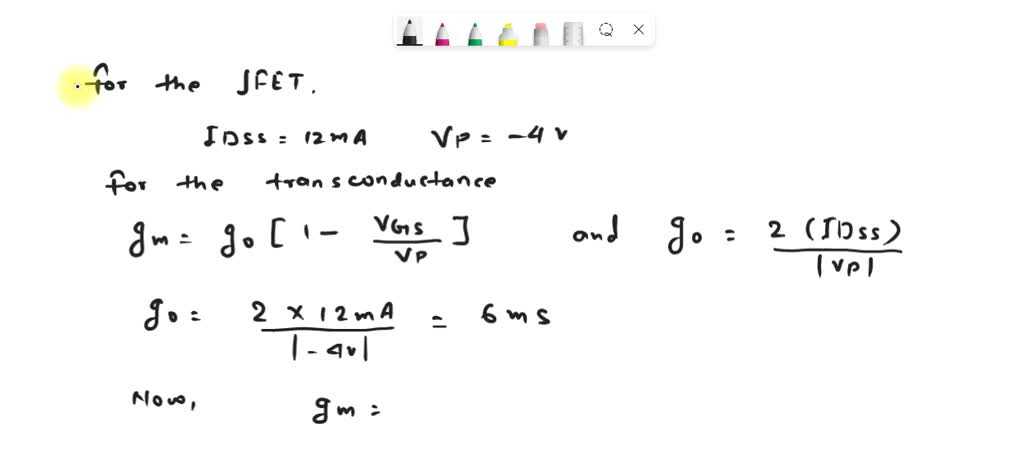 for the JFET.
IDSS = 12mA VP = -4v
for the transconductance
gm = go [ 1 - VGS/VP ] and go = 2 (IDSS)/|VP|
go = 2 x 12mA/|-4v| = 6ms
Now, gm =